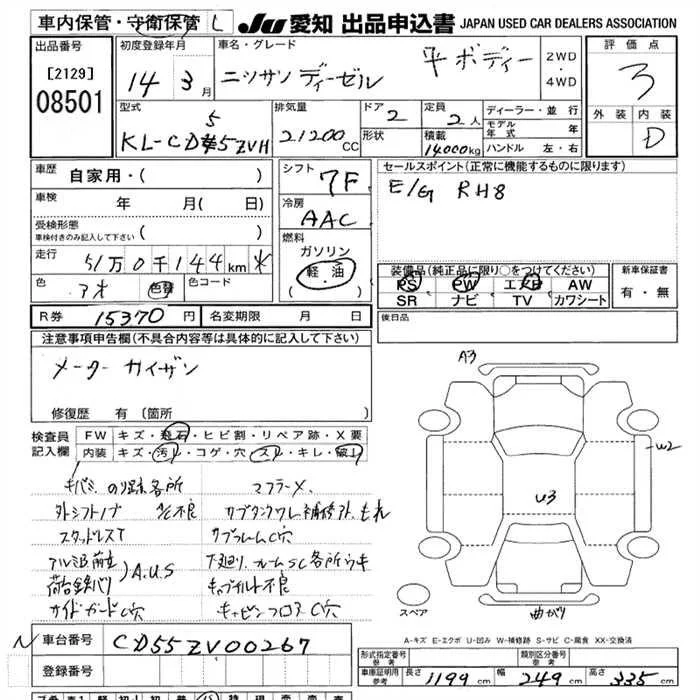 車内保管・守衛保管 L JU 愛知 出品申込書 JAPAN USED CAR DEALERS ASSOCIATION
出品番号 初度登録年月 車名・グレード 2WD・4WD 評価点
[2129] 14年 3月 ニッサンディーゼル 平ボディー 3
08501 外装 内装 D
型式 排気量 ドア 2 定員 2人 ディーラー・並行
KL-CD 5ZVH 21200cc 形状 積載 14000kg モデル年式 年
ハンドル 左・右
車歴 自家用・( ) シフト 7F セールスポイント(正常に機能するものに限ります)
車検 年 月( 日) 冷房 AAC E/G RH8
受検形態 車検付きのみ記入して下さい ( ) 燃料 ガソリン
走行 51万0千144km 軽・油 ( ) 装備品(純正品に限り○をつけてください) 新車保証書
色 アオ 色替 色コード PS PW エアB AW 有・無
SR ナビ TV カワシート
R券 15370円 名変期限 月 日 後日品
注意事項申告欄(不具合内容等は具体的に記入して下さい)
メーターカイザン
A3
修復歴 有(箇所
検査員記入欄 FW キズ・飛石・ヒビ割・リペア跡・X要
内装 キズ・汚れ・コゲ・穴・スレ・キレ・破れ
W2
U3
キバミ、のり跡各所 マフラーメ、
外シフトノブ 不良 サブタンクワレ補修跡、もれ
スタッドレスT サブフレームC穴
アルミ 前 A.U.S 下廻り、フレームSC各所ウキ
荷台鉄バリ 不良
サイドガードC穴 キャビンフロアC穴
スペア 曲がり
A-キズ E-エクボ U-凹み W-補修跡 S-サビ C-腐食 XX-交換済
N 車台番号 CD55ZV00267
登録番号
形式指定番号 参考 類別区分番号 参考
車庫証明用参考 長さ 1199cm 幅 249cm 高さ 335cm